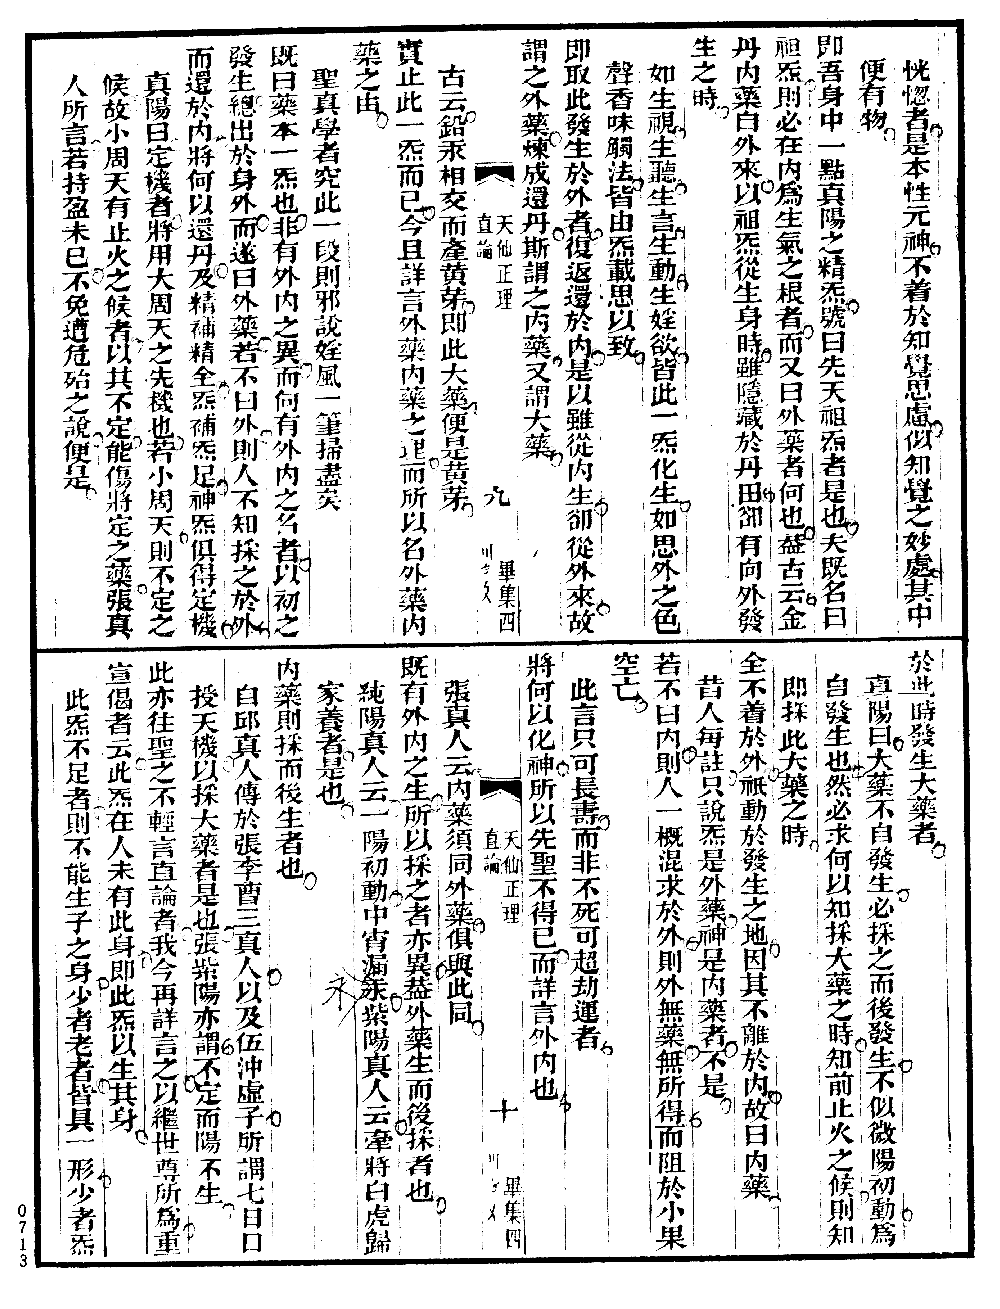 恍惚者是本性元神不着於知覺思慮似知覺之妙處其中
便有物
即吾身中一點真陽之精炁號曰先天祖炁者是也夫既名曰
祖炁則必在內為生氣之根者而又曰外藥者何也葢古云金
丹內藥自外來以祖炁從生身時雖隱藏於丹田卻有向外發
生之時
如生視生聽生言生動生婬欲皆此一炁化生如思外之色
聲香味觸法皆由炁載思以致
即取此發生於外者復返還於內是以雖從內生卻從外來故
謂之外藥煉成還丹斯謂之內藥又謂大藥
天仙正理
直論
九
畢集四
古云鉛汞相交而產黄芽即此大藥便是黄芽
實止此一炁而已今且詳言外藥內藥之理而所以名外藥內
藥之由
聖真學者究此一段則邪說婬風一筆掃盡矣
既曰藥本一炁也非有外內之異而何有外內之名者以初之
發生總出於身外而遂曰外藥若不曰外則人不知採之於外
而還於內將何以還丹及精補精全炁補炁足神炁俱得定機
真陽曰定機者將用大周天之先機也若小周天則不定之
候故小周天有止火之候者以其不定能傷將定之藥張真
人所言若持盈未已不免遭危殆之說便是
於此時發生大藥者
真陽曰大藥不自發生必採之而後發生不似微陽初動為
自發生也然必求何以知採大藥之時知前止火之候則知
即採此大藥之時
全不着於外祇動於發生之地因其不離於內故曰內藥
昔人每註只說炁是外藥神是內藥者不是
若不曰內則人一概混求於外則外無藥無所得而阻於小果
空亡
此言只可長壽而非不死可超劫運者
將何以化神所以先聖不得已而詳言外內也
天仙正理
直論
十
畢集四
張真人云內藥須同外藥俱與此同
既有外內之生所以採之者亦異葢外藥生而後採者也
純陽真人云一陽初動中宵漏汞紫陽真人云牽將白虎歸
永
家養者是也
內藥則採而後生者也
自邱真人傳於張李曹三真人以及伍沖虛子所謂七日口
授天機以採大藥者是也張紫陽亦謂不定而陽不生
此亦往聖之不輕言直論者我今再詳言之以繼世尊所為重
宣偈者云此炁在人未有此身即此炁以生其身
此炁不足者則不能生子之身少者老者皆具一形少者炁
0713